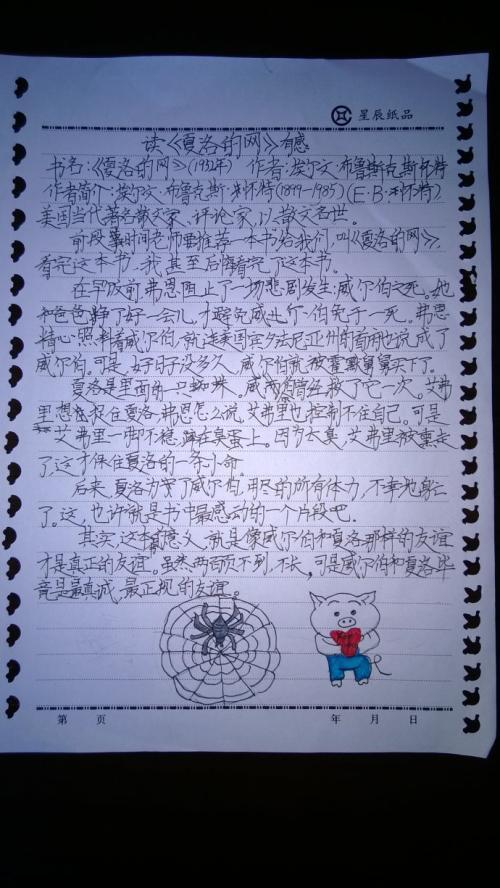 星辰纸品
读《夏洛的网》有感
书名:《夏洛的网》(1932年) 作者:埃尔文·布鲁斯克斯·怀特
作者简介:埃尔文·布鲁克斯·怀特(1899-1985)(E·B·怀特)
美国当代著名散文家、评论家,以散文名世。
前段时间老师推荐一本书给我们,叫《夏洛的网》,
看完这本书,我甚至后悔看完了这本书。
在早饭前,弗恩阻止了一场悲剧发生:威尔伯之死。她
和爸爸争了好一会儿,才避免威尔伯免于一死。弗恩
精心照料着威尔伯,就连美国宾夕法尼亚州的首府也说成了
威尔伯。可是,好日子没多久,威尔伯就被霍默舅舅买下了。
夏洛是里面的一只蜘蛛。威尔伯曾经救了它一次。艾弗
里想捉住夏洛,弗恩怎么说,艾弗里也控制不住自己。可是
艾弗里一脚不稳,摔在臭蛋上。因为太臭,艾弗里被熏走
了,这才保住夏洛的一条小命。
后来,夏洛为了威尔伯,用尽的所有体力,不幸地身亡
了。这,也许就是书中最感动的一个片段吧。
其实,这本书的意义,就是像威尔伯和夏洛那样的友谊
才是真正的友谊。虽然两百页不到,不长,可是威尔伯和夏洛毕
竟是最真诚、最正规的友谊。
第 页 年 月 日